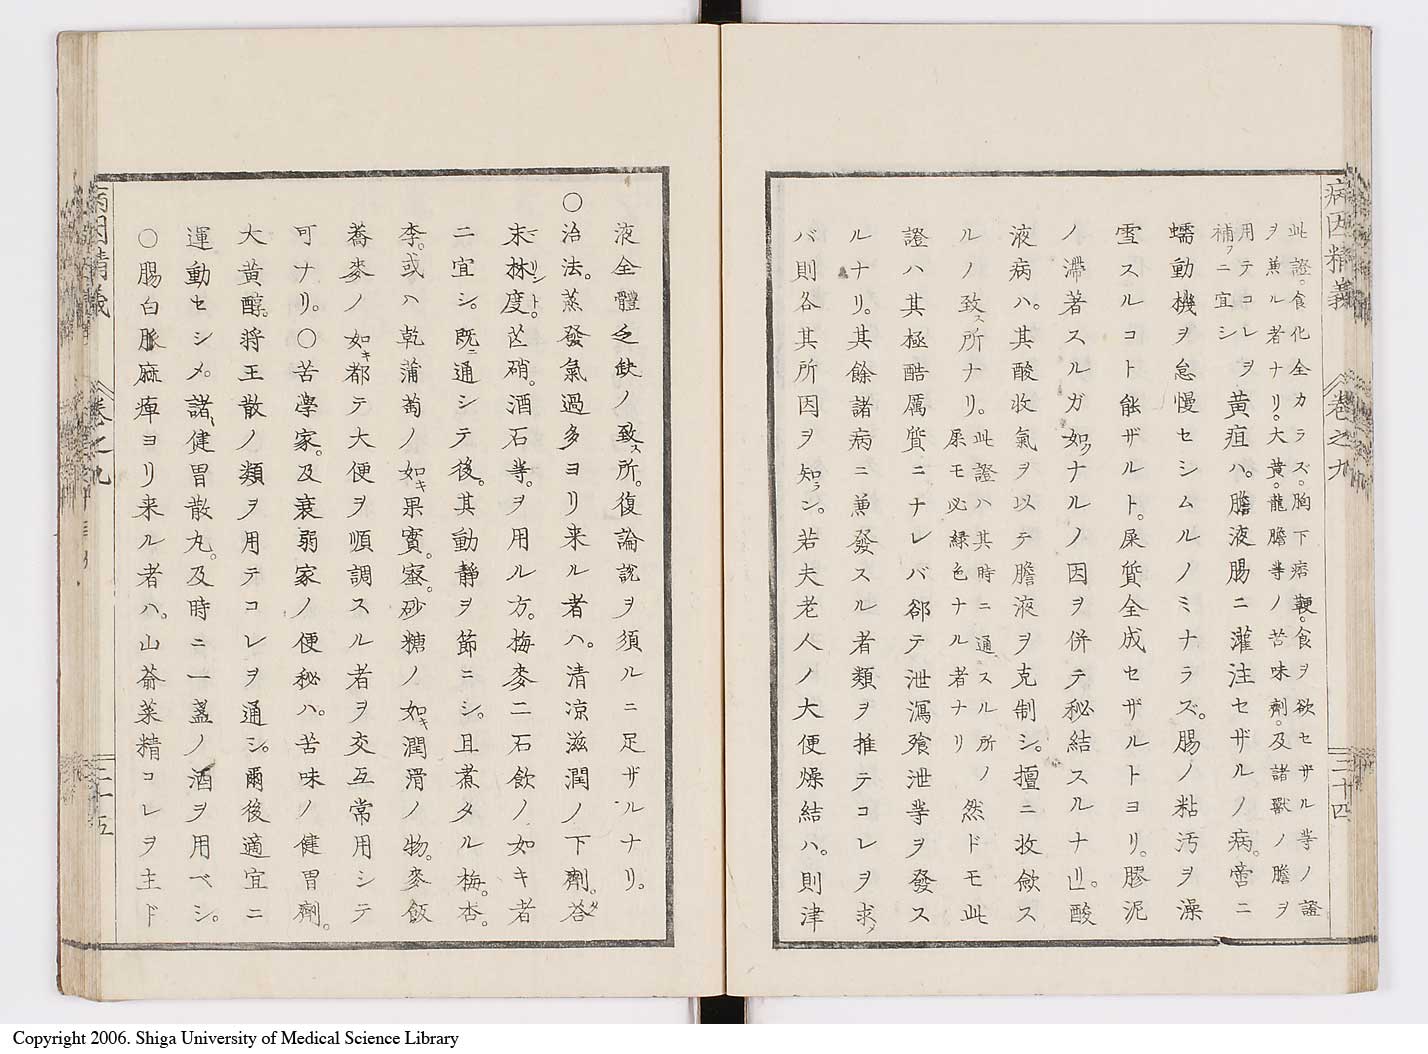 病因精義
卷之九
三十四
此證。食化全カラズ。胸下痞鞕。食ヲ欲セザル等ノ證
ヲ兼ル者ナリ。大黄。龍膽等ノ苦味劑。及諸獸ノ膽ヲ
用テコレヲ
補フニ宜シ
黄疸ハ。膽液腸ニ灌注セザルノ病。啻ニ
蠕動機ヲ怠慢セシムルノミナラズ。腸ノ粘汚ヲ澡
雪スルコト能ザルト。屎質全成セザルトヨリ。膠泥
ノ滯著スルガ如クナルノ因ヲ併テ秘結スルナリ。酸
液病ハ。其酸收氣ヲ以テ膽液ヲ克制シ。擅ニ收斂ス
ルノ致ス所ナリ。
此證ハ其時ニ通スル所ノ
屎モ必緑色ナル者ナリ
然ドモ此
證ハ其極酷厲質ニナレバ郤テ泄瀉飱泄等ヲ發ス
ルナリ。其餘諸病ニ兼發スル者類ヲ推テコレヲ求ム
バ則各其所因ヲ知ラン。若夫老人ノ大便燥結ハ。則津
液全體乏缺ノ致ス所。復論説ヲ須ルニ足ザルナリ。
〇治法。蒸發氣過多ヨリ来ル者ハ。清涼滋潤ノ下劑。答タ
末マ林リン度ト。芒硝。酒石等。ヲ用ル方。梅麥二石飲ノ如キ者
ニ宜シ。既ニ通シテ後。其動靜ヲ節ニシ。且煮タル梅。杏。
李。或ハ乾蒲萄ノ如キ果實。蜜。砂糖ノ如キ潤滑ノ物。麥飯
蕎麥ノ如キ都テ大便ヲ順調スル者ヲ交互常用シテ
可ナリ。〇苦學家。及衰弱家ノ便秘ハ。苦味ノ健胃劑。
大黄醇。将王散ノ類ヲ用テコレヲ通シ。爾後適宜ニ
運動セシメ。諸健胃散丸。及時ニ一盞ノ酒ヲ用ベシ。
〇腸白脈麻痺ヨリ来ル者ハ。山菾菜精コレヲ主ド
病因精義
卷之九
三十五
Copyright 2006. Shiga University of Medical Science Library